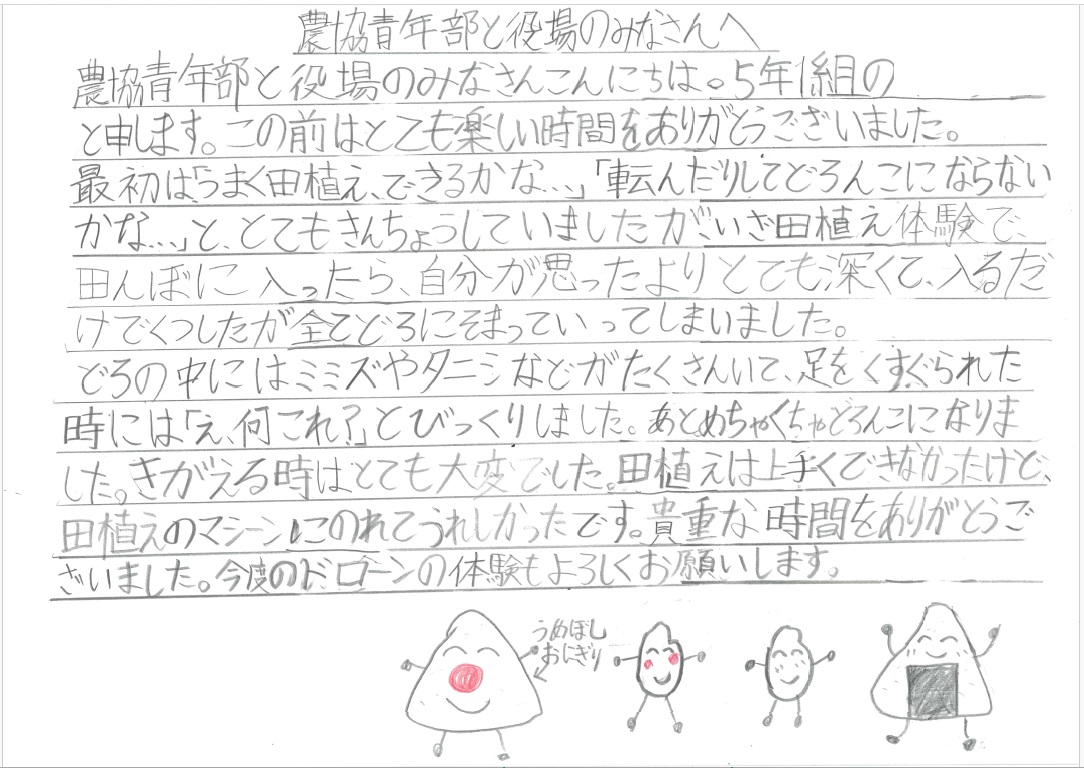 農協青年部と役場のみなさんへ
農協青年部と役場のみなさんこんにちは。5年1組の
と申します。この前はとても楽しい時間をありがとうございました。
最初は「うまく田植え、できるかな…」「転んだりしてどろんこにならない
かな…」と、とてもきんちょうしていましたがいざ田植え体験で、
田んぼに入ったら、自分が思ったよりとても深くて、入るだ
けでくつしたが全てどろにそまっていってしまいました。
どろの中にはミミズやタニシなどがたくさんいて、足をくすぐられた
時には「え、何これ?」とびっくりしました。あとめちゃくちゃどろんこになりま
した。きがえる時はとても大変でした。田植えは上手くできなかったけど、
田植えのマシーンにのれてうれしかったです。貴重な時間をありがとうご
ざいました。今度のドローンの体験もよろしくお願いします。
うめぼし
おにぎり